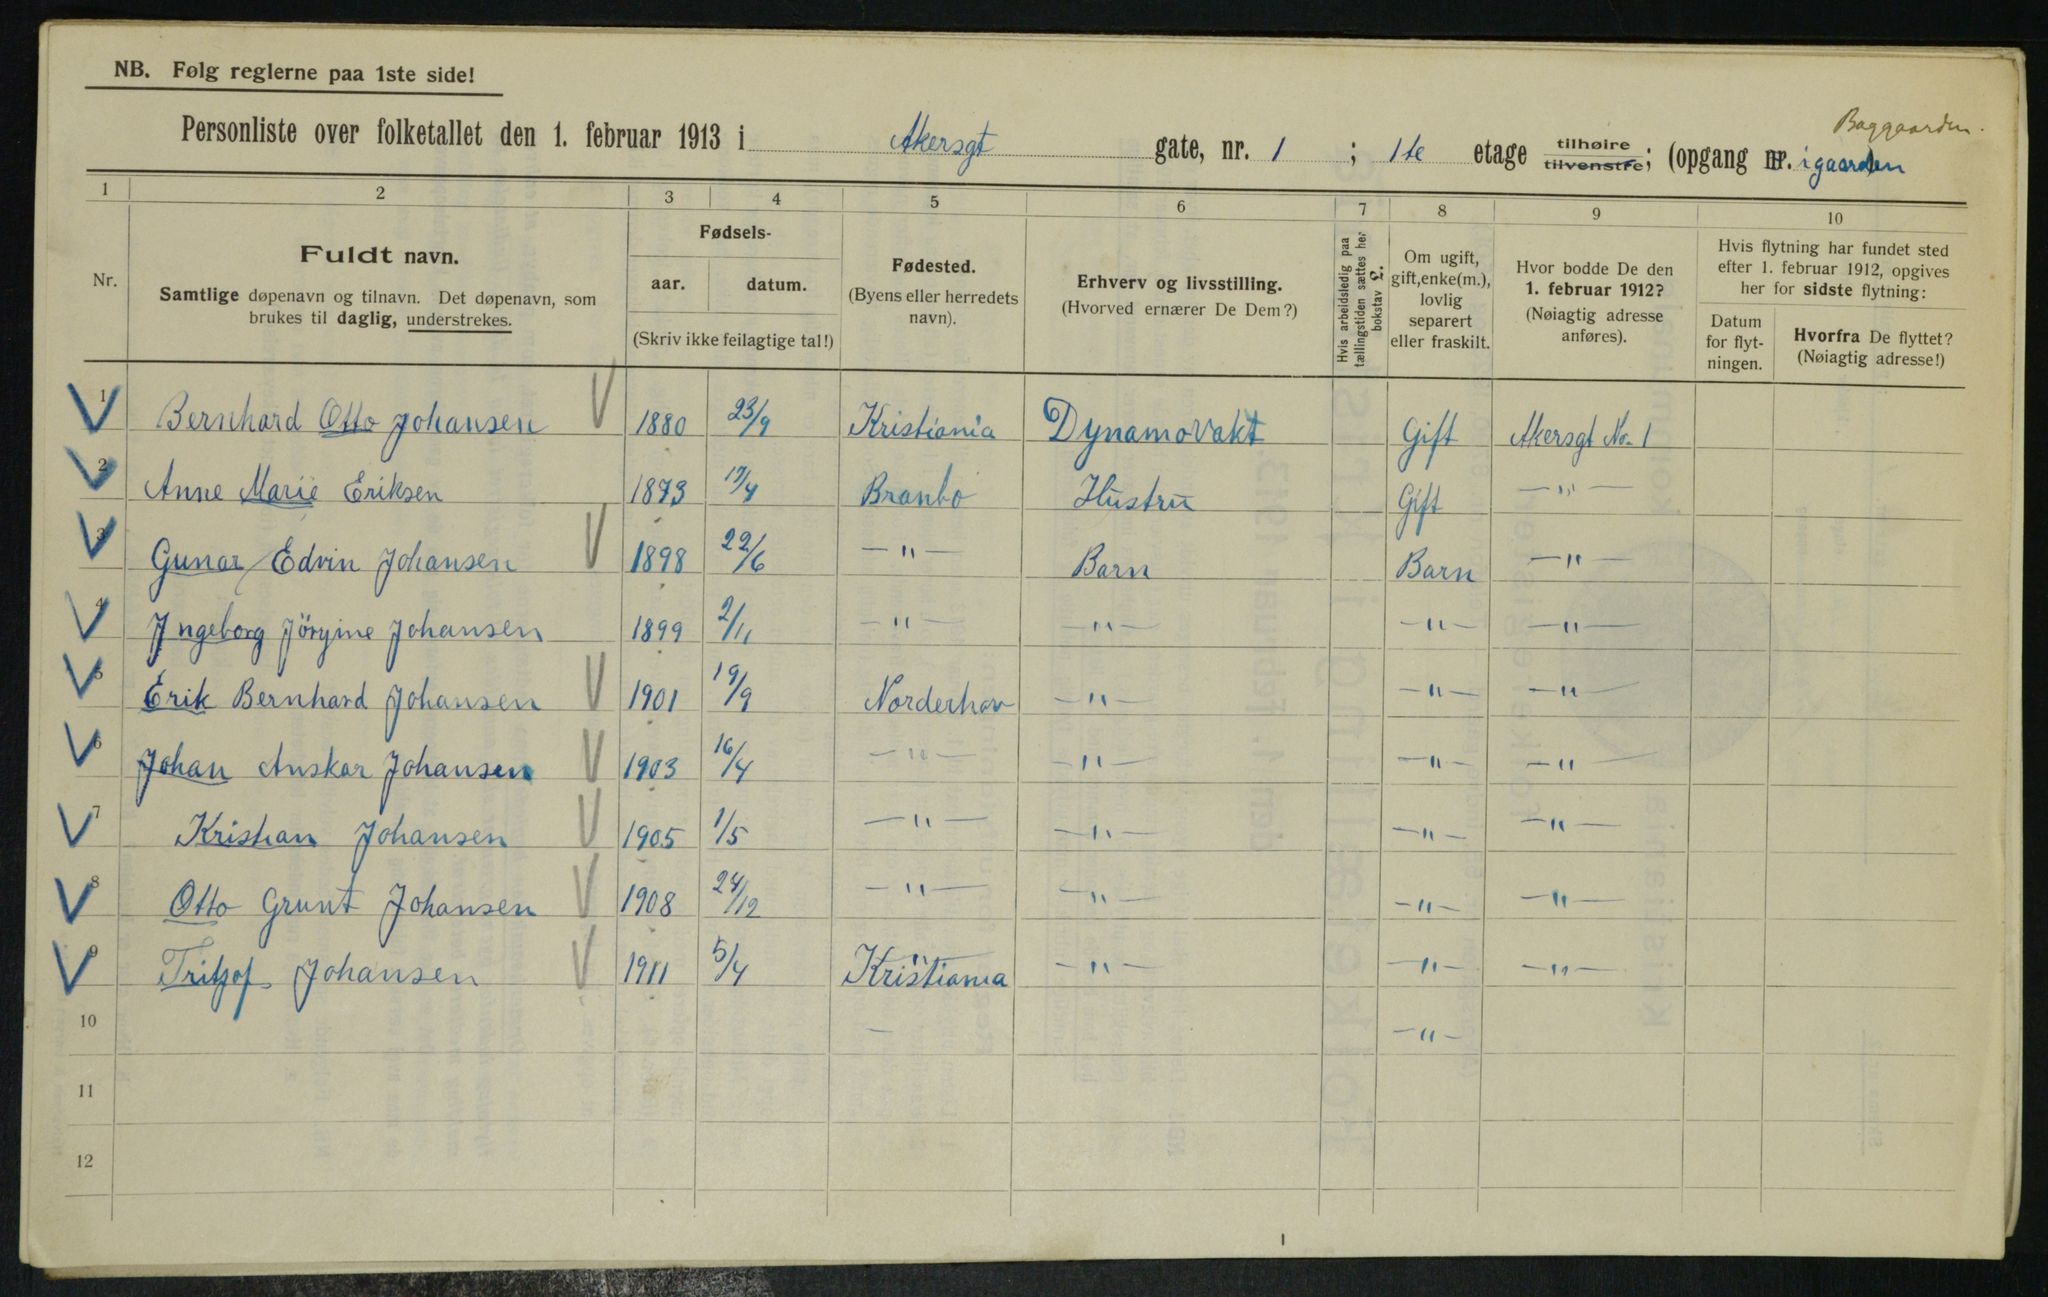 NB. Følg reglerne paa 1ste side!
Baggaarden.
Personliste over folketallet den 1. februar 1913 i Akersgt gate, nr. 1 ; 1te etage tilhøire tilvenstre; (opgang nr. i gaarden
1 2 3 4 5 6 7 8 9 10
Nr.
Fuldt navn.
Samtlige døpenavn og tilnavn. Det døpenavn, som
brukes til daglig, understrekes.
Fødsels-
aar. datum.
(Skriv ikke feilagtige tal!)
Fødested.
(Byens eller herredets
navn).
Erhverv og livsstilling.
(Hvorved ernærer De Dem?)
Hvis arbeidsledig paa
tællingstiden sættes her
bokstav L.
Om ugift,
gift, enke(m.),
lovlig
separert
eller fraskilt.
Hvor bodde De den
1. februar 1912?
(Nøiagtig adresse
anføres).
Hvis flytning har fundet sted
efter 1. februar 1912, opgives
her for sidste flytning:
Datum
for flyt-
ningen.
Hvorfra De flyttet?
(Nøiagtig adresse!)
1 Bernhard Otto Johansen 1880 23/9 Kristiania Dynamovakt Gift Akersgt No. 1
2 Anne Marie Eriksen 1873 17/4 Branbo Hustru Gift —"—
3 Gunar Edvin Johansen 1898 22/6 —"— Barn Barn —"—
4 Ingeborg Jörgine Johansen 1899 2/11 —"— —"— —"— —"—
5 Erik Bernhard Johansen 1901 19/9 Norderhov —"— —"— —"—
6 Johan Anskar Johansen 1903 16/4 —"— —"— —"— —"—
7 Kristian Johansen 1905 1/5 —"— —"— —"— —"—
8 Otto Grunt Johansen 1908 24/12 —"— —"— —"— —"—
9 Fritjof Johansen 1911 5/4 Kristiania —"— —"— —"—
10 — —"—
11
12
1